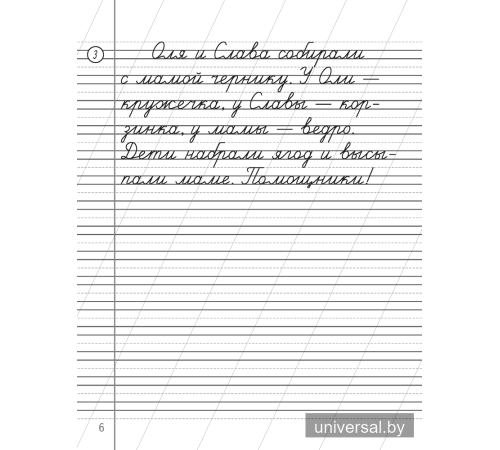 3
Оля и Слава собирали
с мамой чернику. У Оли —
кружечка, у Славы — кор-
зинка, у мамы — ведро.
Дети набрали ягод и высы-
пали маме. Помощники!
6
universal.by